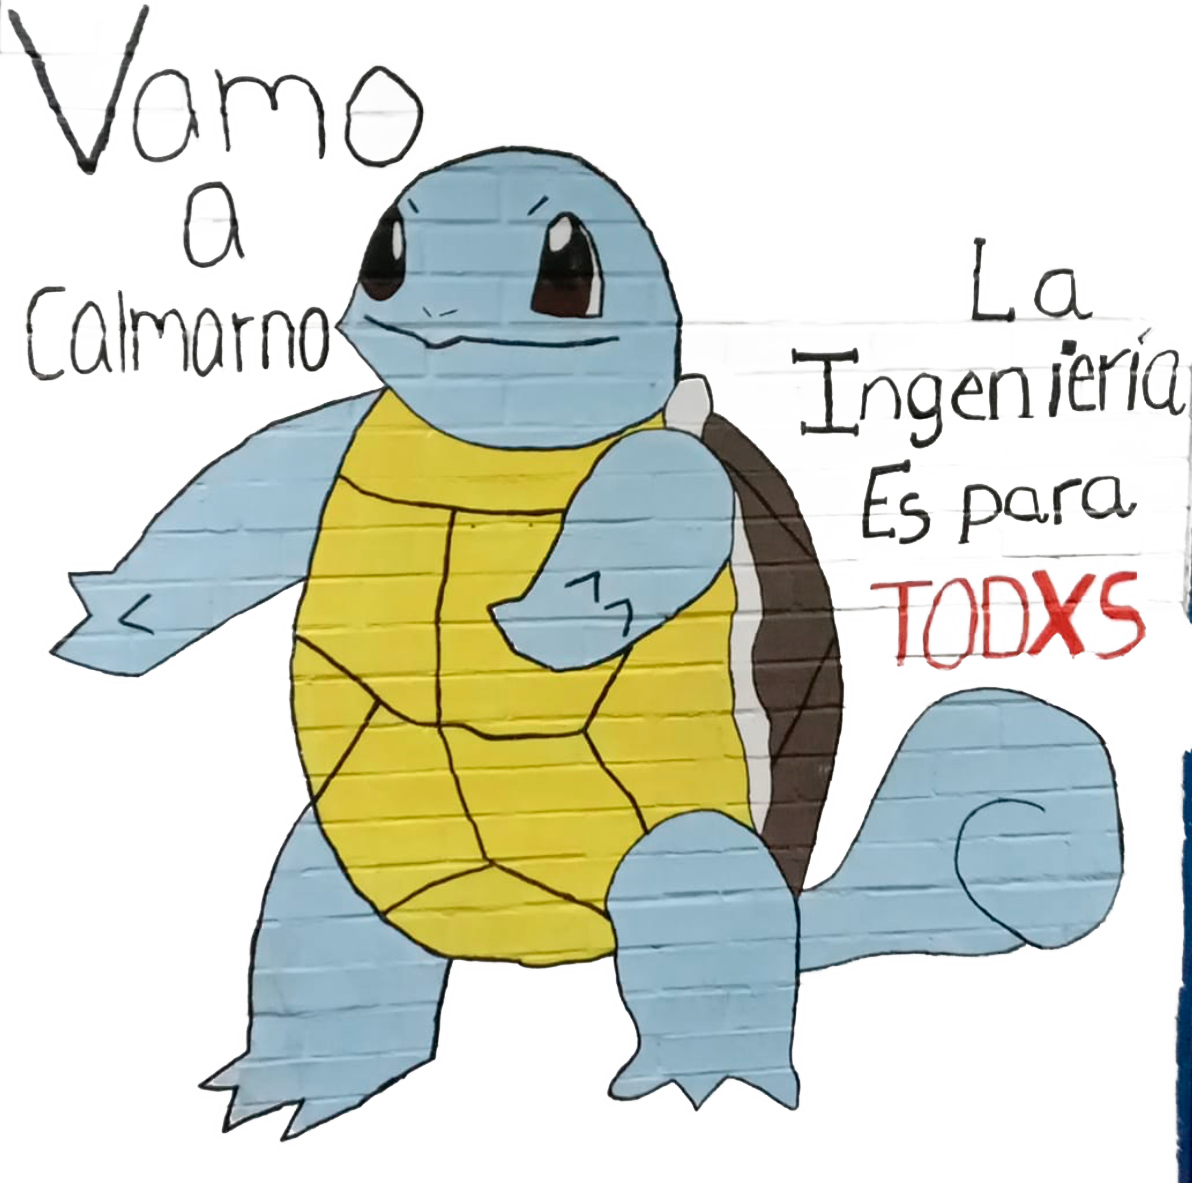 Vamo
a
Calmarno
La
Ingeniería
Es para
TODXS